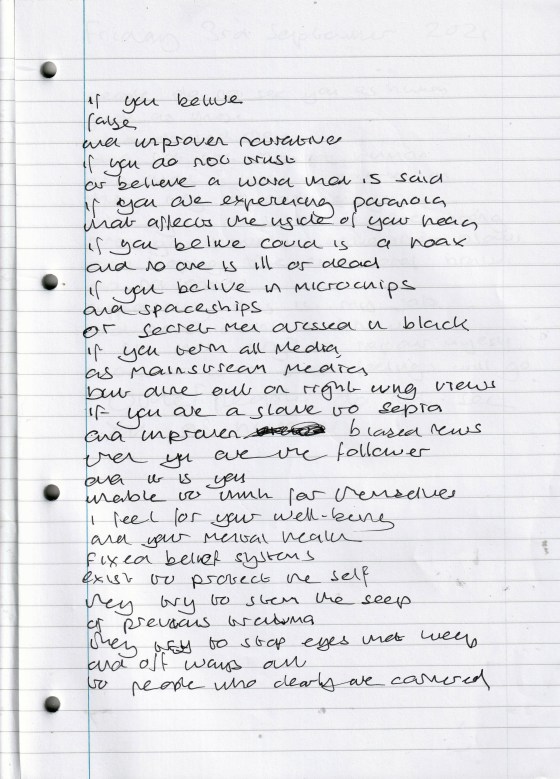 if you belive
false
and unproven narrative
if you do not trust
or believe a word that is said
if you are experiencing paranoia
that affects the inside of your head
if you belive covid is a hoax
and no one is ill or dead
if you belive in microchips
and spaceships
or secret men dressed in black
if you term all media
as mainstream media
but dine out on right wing views
if you are a slave to
and unproven biased news
then you are the follower
and it is you
unable to think for themselves
i feel for your well-being
and your mental health
fixed belief systems
exist to protect the self
they try to stem the seep
of previous trauma
they try to stop eyes that weep
and off ways out
to people who clearly are cornered